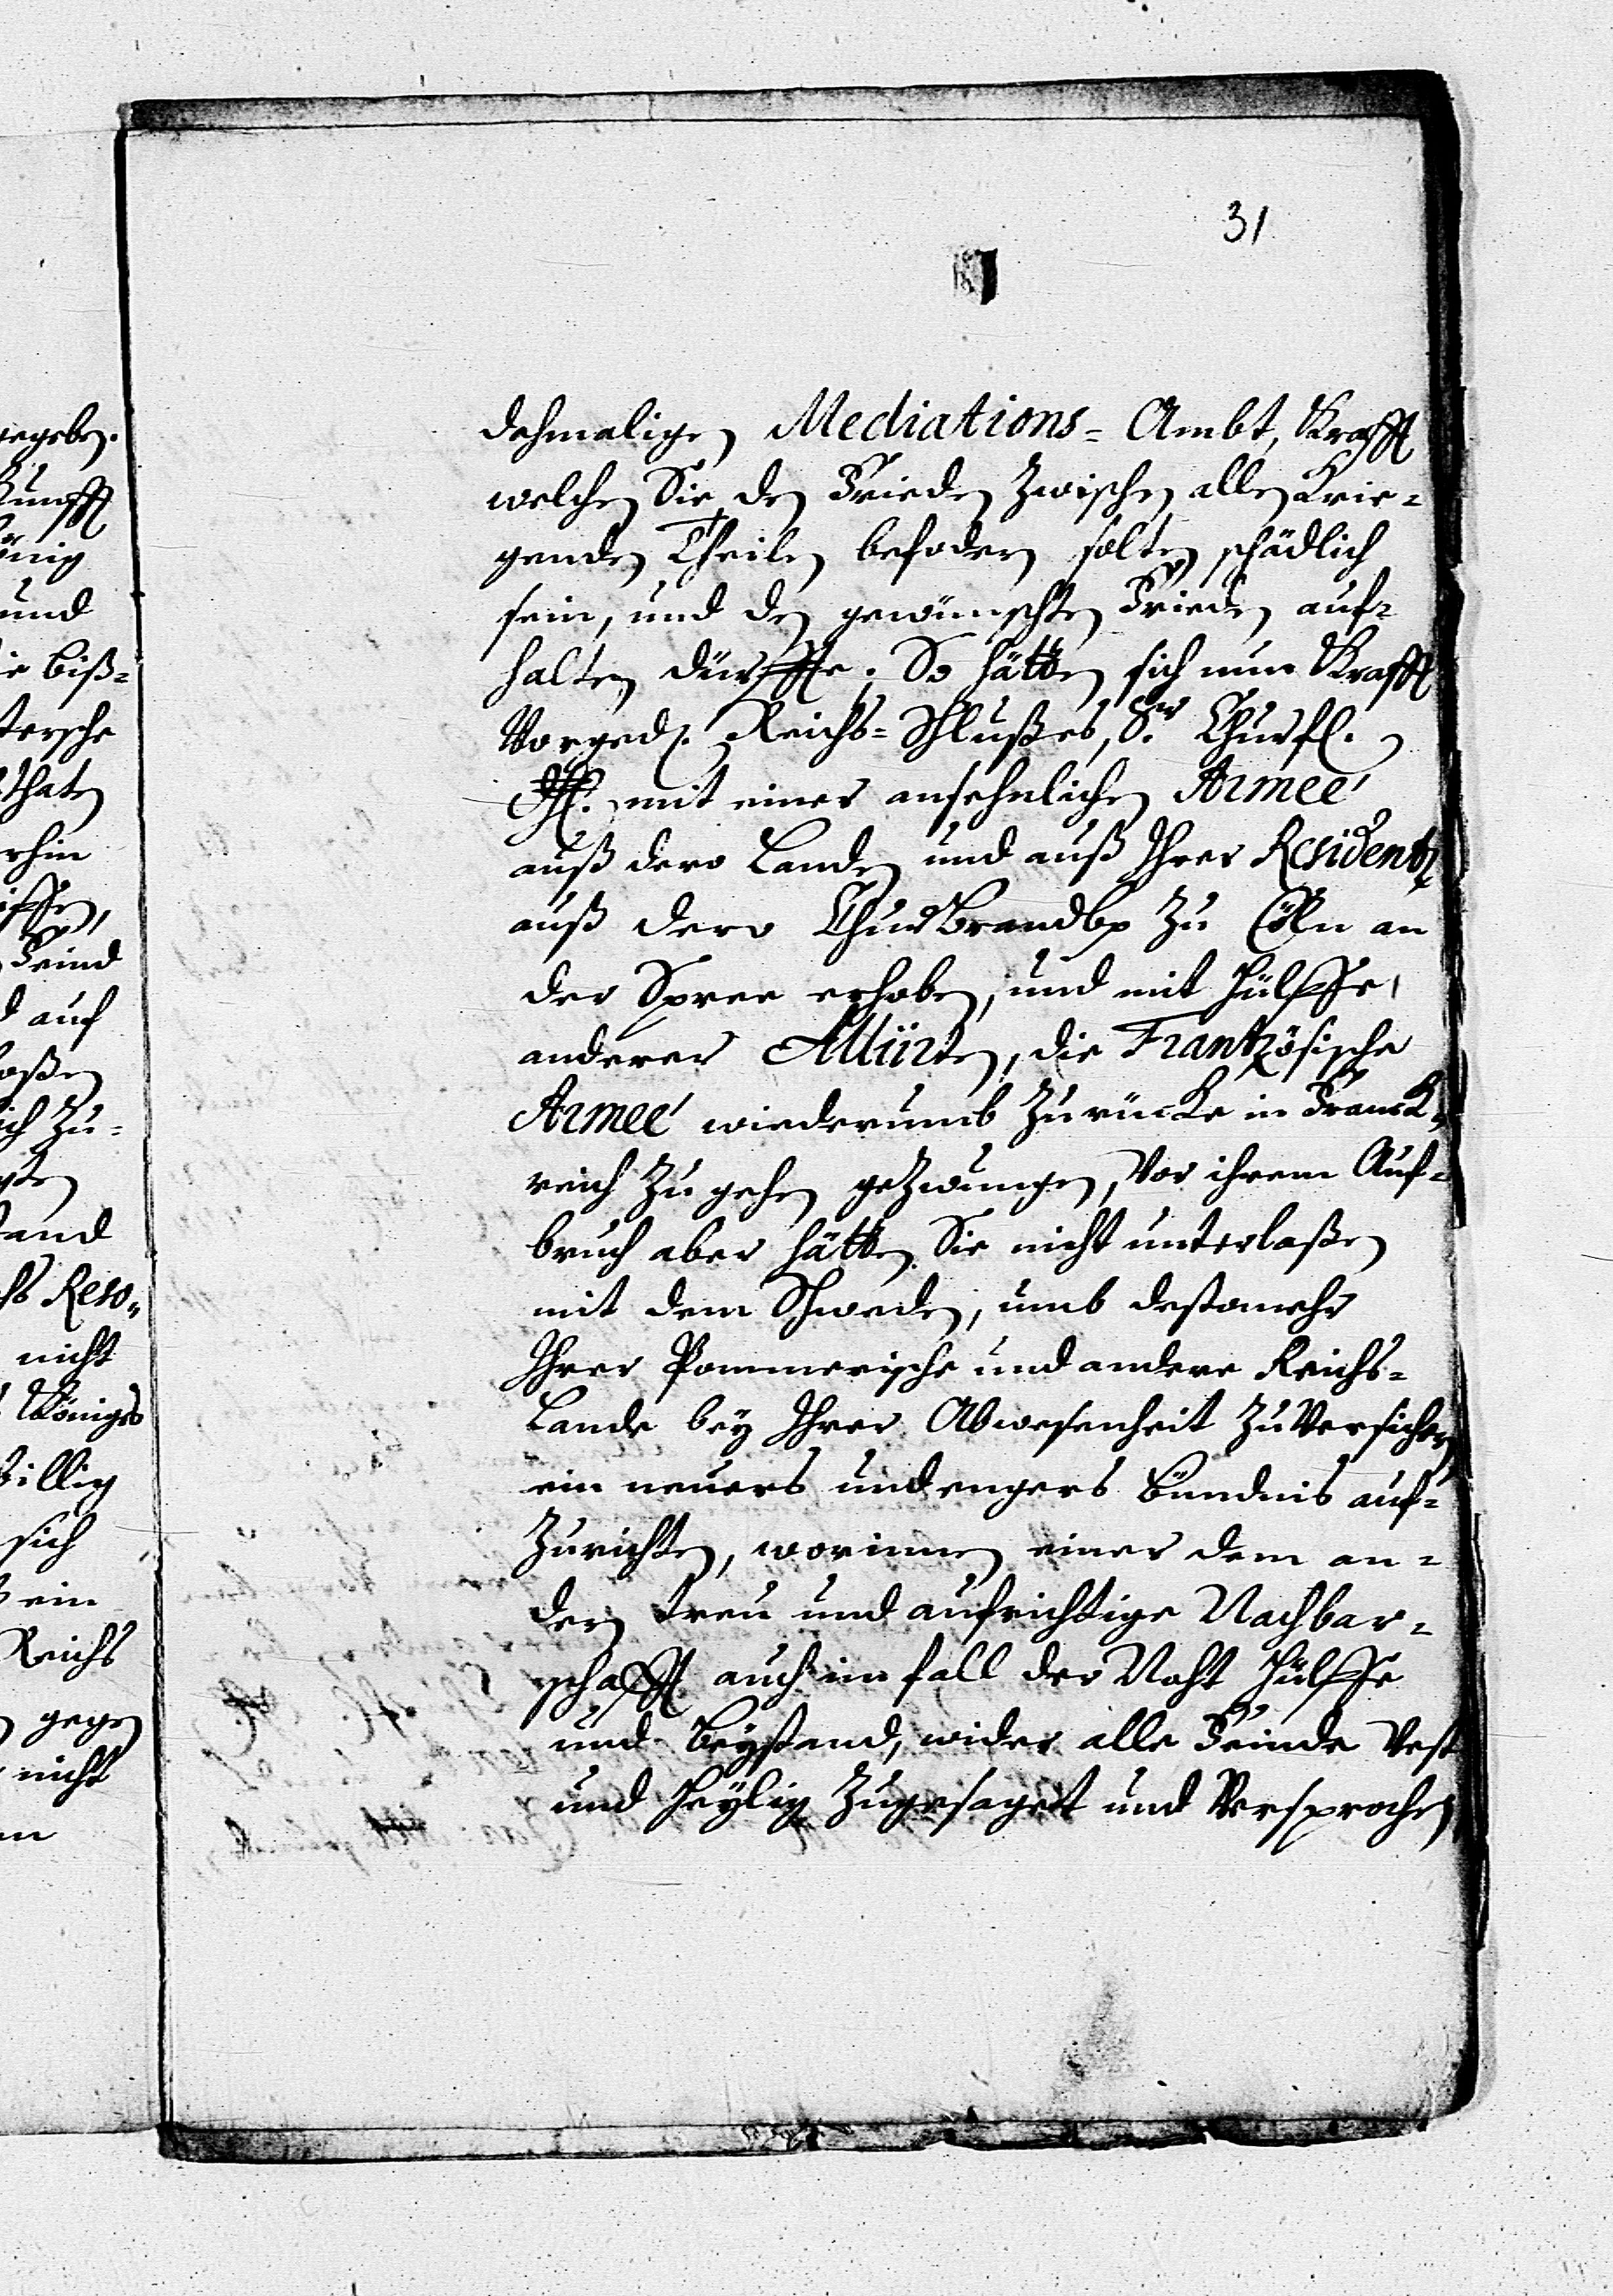 31
dahmaligen Mediations-Ambt, Krafft
welchen Sie den Frieden zwischen allen Krie-
genden Theilen befodern solten schädlich
sein, und den gewünschten Frieden auf-
halten dürffte; So hätten sich nun Krafft
Vorged. Reichs-Schlußes, Sr. Churfl.
mit einer ansehnlichen Armeé
auß dero Landen und auß Ihrer Residentz
auß dero ChurBrandbg zu Cölln an
der Spree erhoben, und mit Hülffe
anderer Alliirten, die Frantzösische
Armeé wiederumb zurücke in Franck-
reich zu gehen gezwungen, Vor ihrem Auf-
bruch aber hätten Sie nicht unterlaßen
mit dem Schweden, umb destomehr
Ihrer Pommerische und andere Reichs-
Lande bey Ihrer Abwesenheit zu Versichern
ein neuers und engers Bündnis auf-
zurichten, worinnen einer dem an-
dern treu und aufrichtige Nachbar-
schafft auch im fall der Noht Hülffe
und Beystand, wider alle Feinde Vest
und Heylig zugesaget und Versprochen
gegeben.
Kunfft
König
und
die biß-
thaten
Feind
auf
sich zu-
Reso-
nicht
Königs
billig
sich
ein
Reichs
gegen
nicht